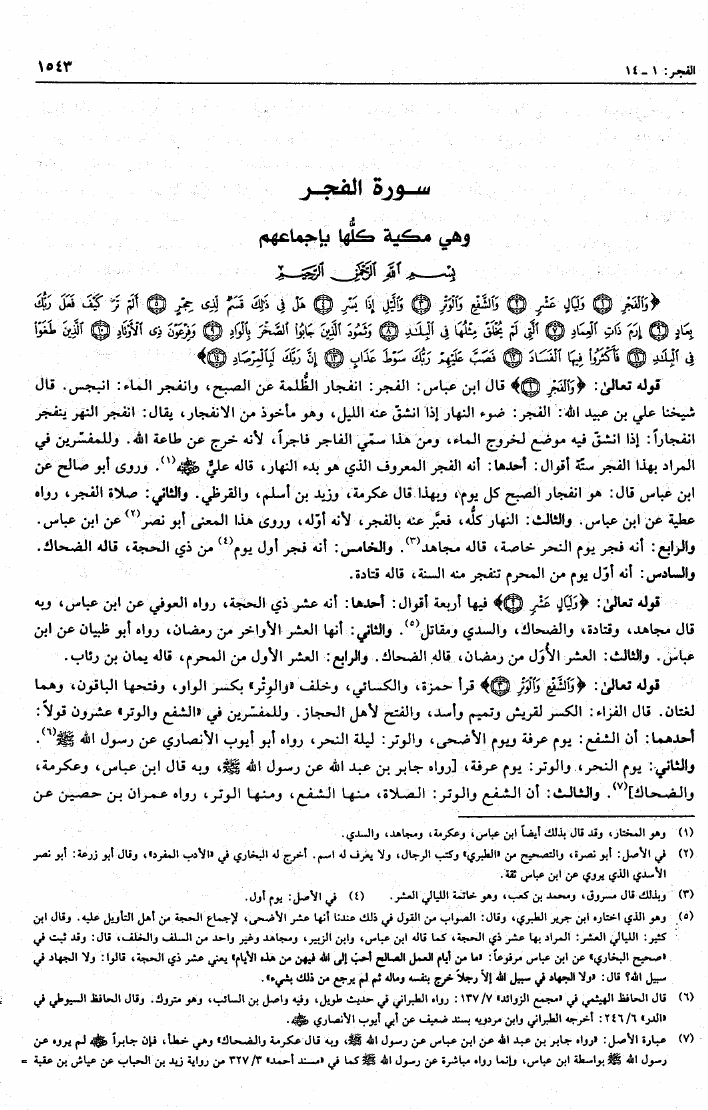 الفجر: ١ - ١٤
١٥٤٣
سـورة الفجـر
وهي مكية كلُّها بإجماعهم
بِسْمِ اللَّهِ الرَّحْمَنِ الرَّحِيمِ
﴿وَالْفَجْرِ ﴿١﴾ وَلَيَالٍ عَشْرٍ ﴿٢﴾ وَالشَّفْعِ وَالْوَتْرِ ﴿٣﴾ وَاللَّيْلِ إِذَا يَسْرِ ﴿٤﴾ هَلْ فِي ذَلِكَ قَسَمٌ لِذِي حِجْرٍ ﴿٥﴾ أَلَمْ تَرَ كَيْفَ فَعَلَ رَبُّكَ
بِعَادٍ ﴿٦﴾ إِرَمَ ذَاتِ الْعِمَادِ ﴿٧﴾ الَّتِي لَمْ يُخْلَقْ مِثْلُهَا فِي الْبِلَادِ ﴿٨﴾ وَثَمُودَ الَّذِينَ جَابُوا الصَّخْرَ بِالْوَادِ ﴿٩﴾ وَفِرْعَوْنَ ذِي الْأَوْتَادِ ﴿١٠﴾ الَّذِينَ طَغَوْا
فِي الْبِلَادِ ﴿١١﴾ فَأَكْثَرُوا فِيهَا الْفَسَادَ ﴿١٢﴾ فَصَبَّ عَلَيْهِمْ رَبُّكَ سَوْطَ عَذَابٍ ﴿١٣﴾ إِنَّ رَبَّكَ لَبِالْمِرْصَادِ ﴿١٤﴾﴾
قوله تعالىٰ: ﴿وَالْفَجْرِ ﴿١﴾﴾ قال ابن عباس: الفجر: انفجار الظُّلمة عن الصبح، وانفجر الماء: انبجس. قال
شيخنا علي بن عبيد الله: الفجر: ضوء النهار إذا انشق عنه الليل، وهو مأخوذ من الانفجار، يقال: انفجر النهر ينفجر
انفجاراً: إذا انشق فيه موضع لخروج الماء، ومن هذا سمّي الفاجر فاجراً، لأنه خرج عن طاعة الله. وللمفسّرين في
المراد بهذا الفجر ستّة أقوال: أحدها: أنه الفجر المعروف الذي هو بدء النهار، قاله عليّ ﵁(١). وروى أبو صالح عن
ابن عباس قال: هو انفجار الصبح كل يوم، وبهذا قال عكرمة، وزيد بن أسلم، والقرظي. والثاني: صلاة الفجر، رواه
عطية عن ابن عباس. والثالث: النهار كلُّه، فعبَّر عنه بالفجر، لأنه أوّله، وروى هذا المعنى أبو نصر(٢) عن ابن عباس.
والرابع: أنه فجر يوم النحر خاصة، قاله مجاهد(٣). والخامس: أنه فجر أول يوم(٤) من ذي الحجة، قاله الضحاك.
والسادس: أنه أوّل يوم من المحرم تنفجر منه السنة، قاله قتادة.
قوله تعالىٰ: ﴿وَلَيَالٍ عَشْرٍ ﴿٢﴾﴾ فيها أربعة أقوال: أحدها: أنه عشر ذي الحجة، رواه العوفي عن ابن عباس، وبه
قال مجاهد، وقتادة، والضحاك، والسدي ومقاتل(٥). والثاني: أنها العشر الأواخر من رمضان، رواه أبو ظبيان عن ابن
عباس. والثالث: العشر الأُوَل من رمضان، قاله الضحاك. والرابع: العشر الأول من المحرم، قاله يمان بن رئاب.
قوله تعالىٰ: ﴿وَالشَّفْعِ وَالْوَتْرِ ﴿٣﴾﴾ قرأ حمزة، والكسائي، وخلف «والوِتْر» بكسر الواو، وفتحها الباقون، وهما
لغتان. قال الفراء: الكسر لقريش وتميم وأسد، والفتح لأهل الحجاز. وللمفسّرين في «الشفع والوتر» عشرون قولاً:
أحدهما: أن الشفع: يوم عرفة ويوم الأضحى، والوتر: ليلة النحر، رواه أبو أيوب الأنصاري عن رسول الله ﷺ(٦).
والثاني: يوم النحر، والوتر: يوم عرفة، [رواه جابر بن عبد الله عن رسول الله ﷺ، وبه قال ابن عباس، وعكرمة،
والضحاك](٧). والثالث: أن الشفع والوتر: الصلاة، منها الشفع، ومنها الوتر، رواه عمران بن حصين عن
(١) وهو المختار، وقد قال بذلك أيضاً ابن عباس، وعكرمة، ومجاهد، والسدي.
(٢) في الأصل: أبو نصرة، والتصحيح من «الطبري» وكتب الرجال، ولا يعرف له اسم. أخرج له البخاري في «الأدب المفرد»، وقال أبو زرعة: أبو نصر
الأسدي الذي يروي عن ابن عباس ثقة.
(٣) وبذلك قال مسروق، ومحمد بن كعب، وهو خاتمة الليالي العشر. (٤) في الأصل: يوم أول.
(٥) وهو الذي اختاره ابن جرير الطبري، وقال: الصواب من القول في ذلك عندنا أنها عشر الأضحى، لإجماع الحجة من أهل التأويل عليه. وقال ابن
كثير: الليالي العشر: المراد بها عشر ذي الحجة، كما قاله ابن عباس، وابن الزبير، ومجاهد وغير واحد من السلف والخلف، قال: وقد ثبت في
«صحيح البخاري» عن ابن عباس مرفوعاً: «ما من أيام العمل الصالح أحبّ إلى الله فيهن من هذه الأيام» يعني عشر ذي الحجة، قالوا: ولا الجهاد في
سبيل الله؟ قال: «ولا الجهاد في سبيل الله إلاّ رجلاً خرج بنفسه وماله ثم لم يرجع من ذلك بشيء».
(٦) قال الحافظ الهيثمي في «مجمع الزوائد» ١٣٧/٧: رواه الطبراني في حديث طويل، وفيه واصل بن السائب، وهو متروك. وقال الحافظ السيوطي في
«الدر» ٢٤٦/٦: أخرجه الطبراني وابن مردويه بسند ضعيف عن أبي أيوب الأنصاري ﵁.
(٧) عبارة الأصل: «رواه جابر بن عبد الله عن ابن عباس عن رسول الله ﷺ، وبه قال عكرمة والضحاك» وهي خطأ، فإن جابراً ﵁ لم يروه عن
رسول الله ﷺ بواسطة ابن عباس، وإنما رواه مباشرة عن رسول الله ﷺ كما في «مسند أحمد» ٣٢٧/٣ من رواية زيد بن الحباب عن عياش بن عقبة =